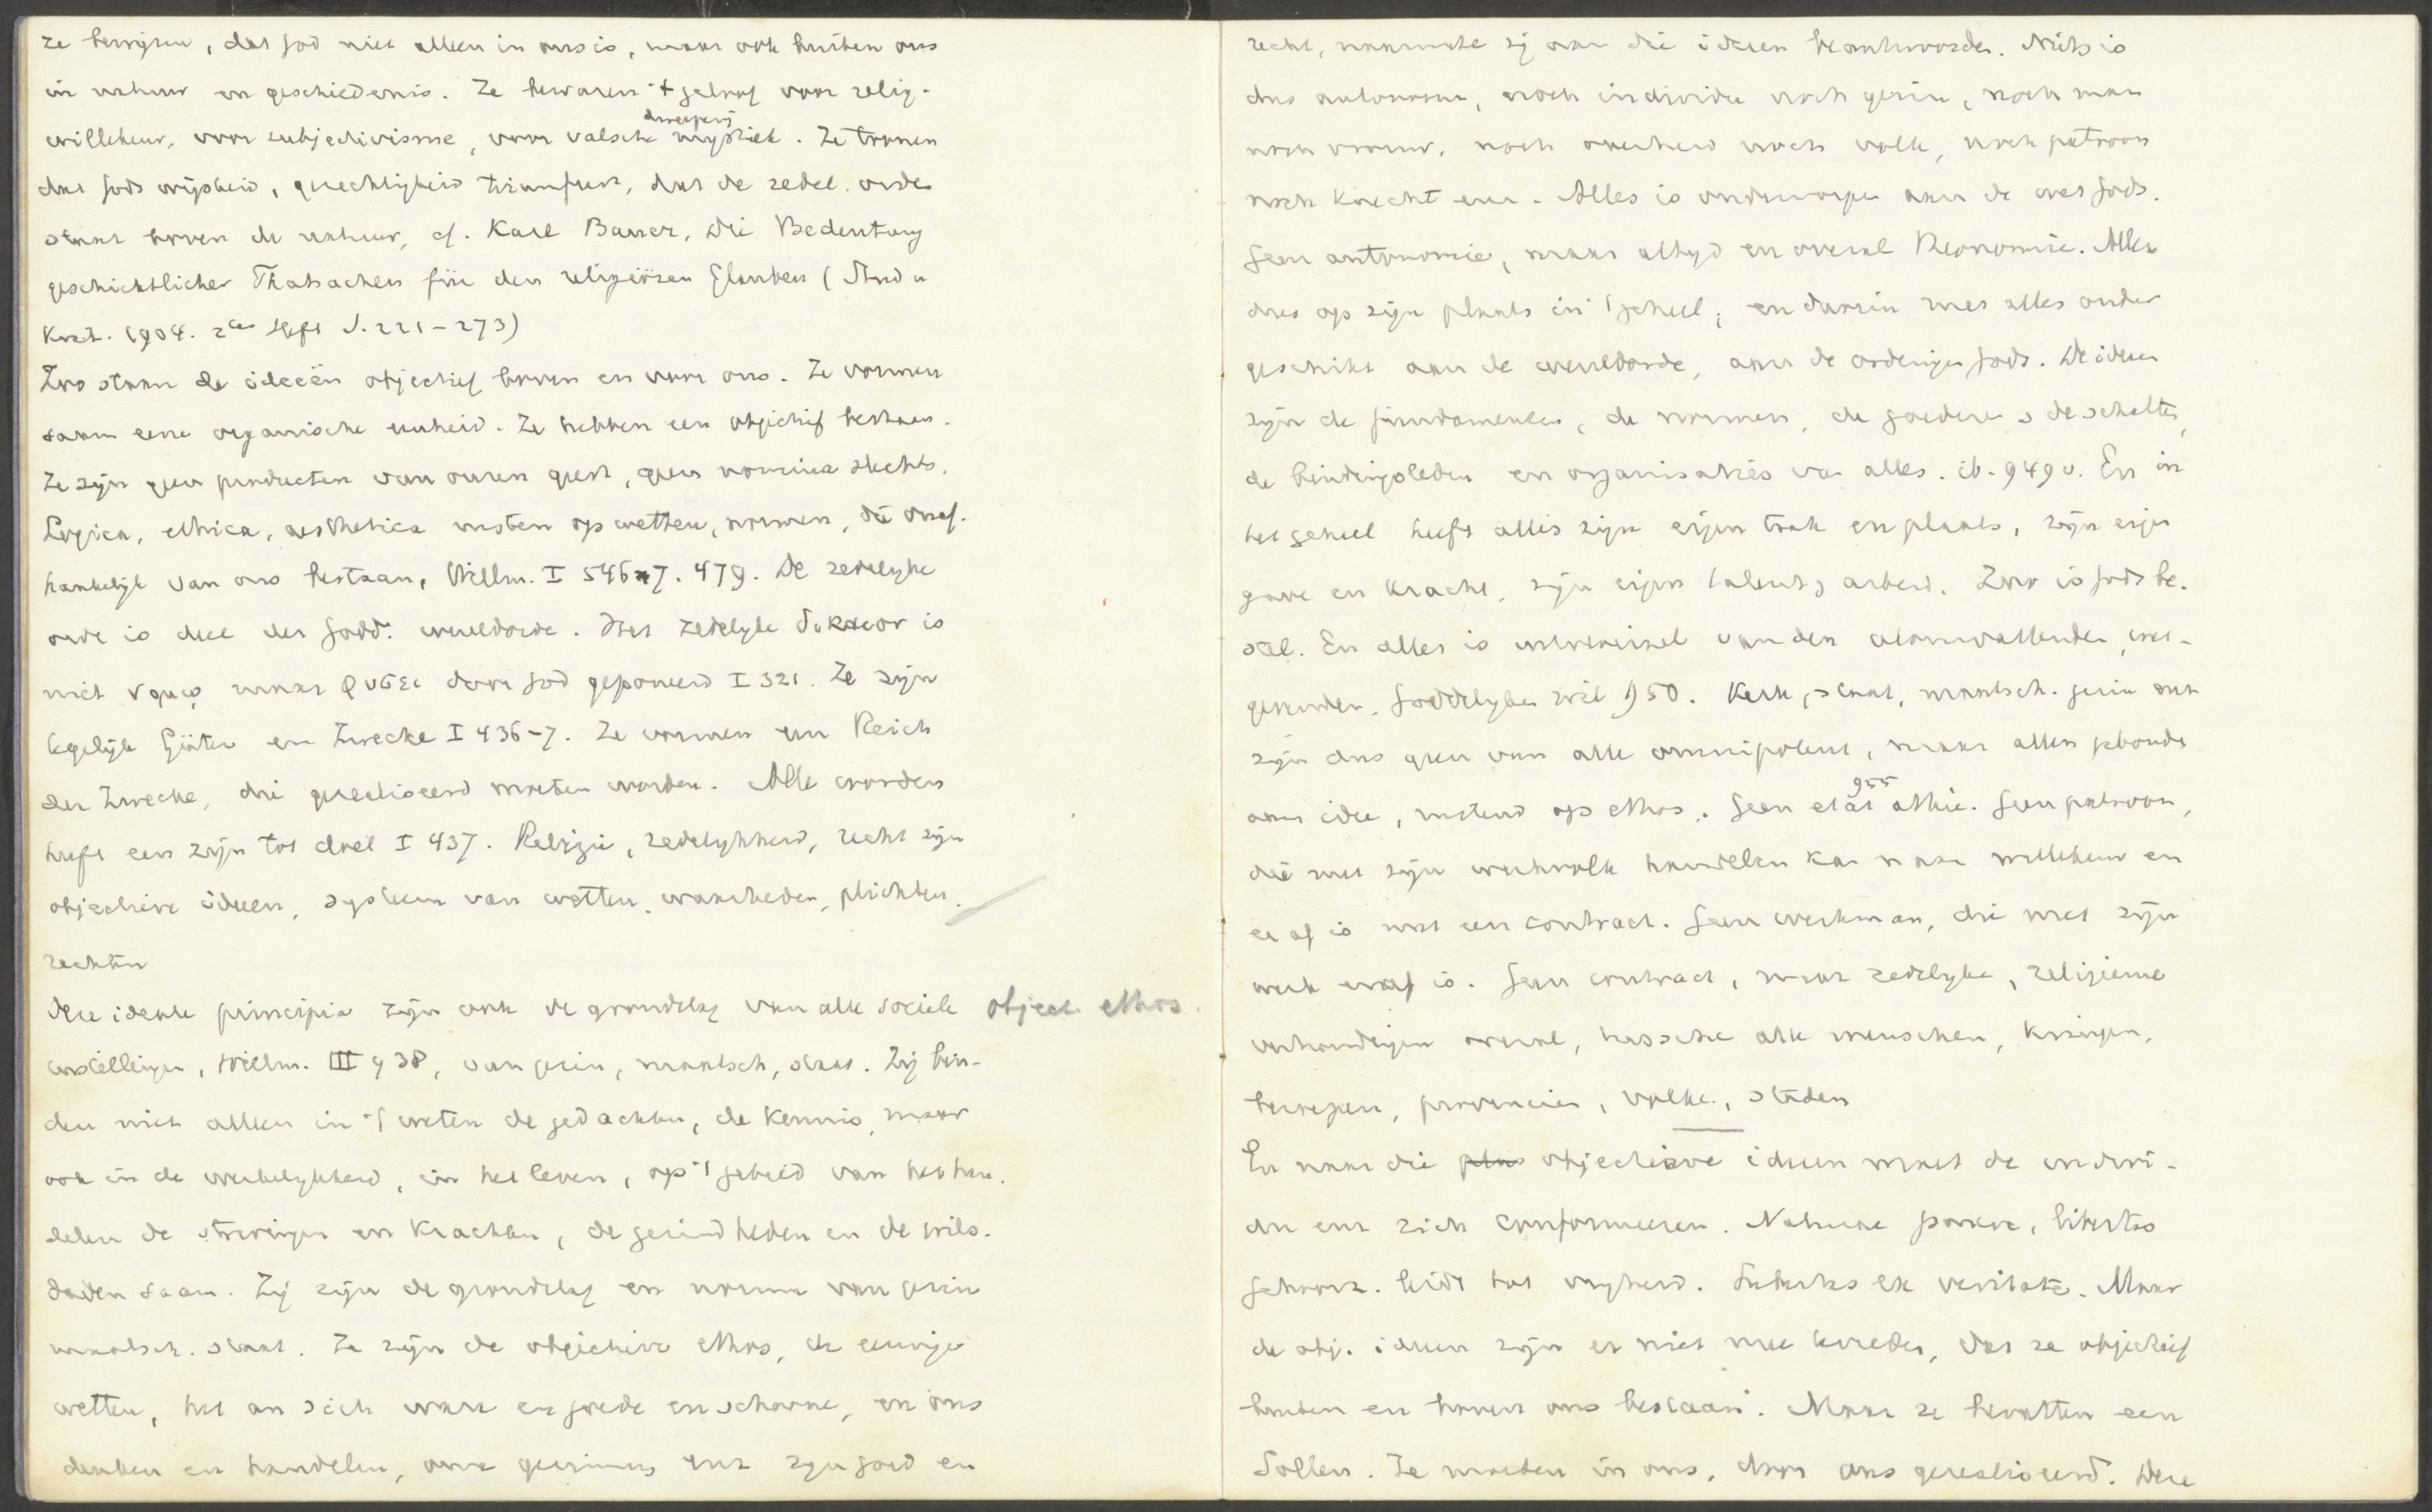 ze bewijzen, dat God niet alleen in ons is, maar ook buiten ons
in natuur en geschiedenis. Ze bewaren 't geloof voor relig.
willekeur, voor subjectivisme, voor valsche mystiek. Ze toonen
dweeperij
dat Gods wijsheid, gerechtigheid triumfeert, dat de zedel. orde
staat boven de natuur, cf. Karl Bauer, Die Bedeutung
geschichtlicher Thatsachen für den religiösen Glauben (Stud u
Krit. 1904. 2tes Heft S. 221-273)
Zoo staan de ideeën objectief boven en voor ons. Ze vormen
saam eene organische eenheid. Ze hebben een objectief bestaan.
Ze zijn geen producten van onzen geest, geen nomina slechts.
Logica, ethica, aesthetica rusten op wetten, normen, die onaf-
hankelijk van ons bestaan, Willm. I 546-7. 479. De zedelijke
orde is deel der Godd. wereldorde. Het zedelijke δικαιον is
niet νομῳ maar φυσει door God geponeerd I 321. Ze zijn
tegelijk Güter en Zwecke I 436-7. Ze vormen een Reich
der Zwecke, die gerealiseerd moeten worden. Alle worden
heeft een zijn tot doel I 437. Religie, zedelijkheid, recht zijn
objectieve ideeen, systeem van wetten, waarheden, plichten,
rechten
Deze ideale principia zijn ook de grondslag van alle sociale object. ethos.
instellingen, Willm. III 938, van gezin, maatsch, staat. Zij bin-
den niet alleen in 't weten de gedachten, de kennis, maar
ook in de werkelijkheid, in het leven, op 't gebied van het han-
delen de strevingen en krachten, de gezindheden en de wils-
daden saam. Zij zijn de grondslag en norma van gezin
maatsch. staat. Ze zijn de objectieve ethos, de eeuwige
wetten, het an sich ware en goede en schoone, en ons
denken en handelen, onze gezinning enz zijn goed en
recht, naarmate zij aan die ideeen beantwoorden. Niets is
dus autonoom, noch individu noch gezin, noch man
noch vrouw, noch overheid noch volk, noch patroon
noch knecht enz. Alles is onderworpen aan de wet Gods.
Geen autonomie, maar altijd en overal theonomie. Alles
dus op zijn plaats in 't geheel; en daarin met alles onder
geschikt aan de wereldorde, aan de ordeningen Gods. De ideeen
zijn de fundamenten, de normen, de goederen, de schatten,
de bindingsleden en organisaties van alles. ib. 949 v. En in
het geheel heeft alles zijn eigen taak en plaats, zijn eigen
gave en kracht, zijn eigen talent, arbeid. Zoo is Gods be-
stel. En alles is uitvloeisel van den alomvattenden, wel-
Goddelijken wil 950. Kerk, staat, maatsch. gezin enz
zijn dus geen van alle omnipotent, maar allen gebonden
aan idee, rustend op ethos. Geen etat athée. Geen patroon,
955
die met zijn werkvolk handelen kan naar willekeur en
er af is met een contract. Geen werkman, die met zijn
werk eraf is. Geen contract, maar zedelijke, religieuse
verhoudingen overal, tusschen alle menschen, kringen,
beroepen, provincien, volken, standen
En naar die objectieve ideeen moet de indivi-
du enz zich conformeeren. Naturae parere, libertas
Gehorch. leidt tot vrijheid. Libertas ex veritate. Maar
de obj. ideeen zijn er niet mee tevreden, dat ze objectief
buiten en boven ons bestaan. Maar ze bevatten een
Sollen. Ze moeten in ons, door ons gerealiseerd. Deze